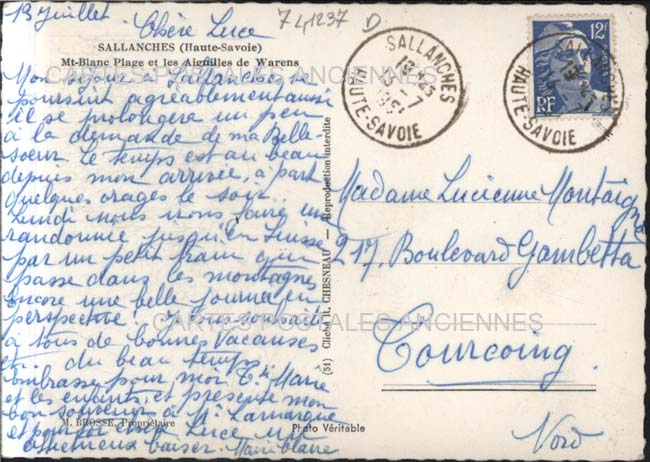 13 Juillet. Chère Luce
741237 D
SALLANCHES (Haute-Savoie)
Mt-Blanc Plage et les Aiguilles de Warens
Mon séjour à Sallanches se
poursuit agréablement aussi
il se prolongera un peu
à la demande de ma Belle-
soeur. Le temps est au beau
depuis mon arrivée, à part
quelques orages le soir.
Lundi nous irons faire une
randonnée jusqu'en Suisse
par un petit train qui
passe dans les montagnes
encore une belle journée en
perspective! Je vous souhaite
à tous de bonnes vacances
et... du beau temps
Embrassez pour moi Marie
et les enfants, et présente mon
bon souvenir à Mr Lamarque
et pour toi chère Luce
affectueux baiser. Marie Blanche
M. BROSSE, Propriétaire
Photo Véritable
(51) Cliché R. CHESNEAU — Reproduction interdite
SALLANCHES
HAUTE-SAVOIE
12F
RF
SALLANCHES
HAUTE-SAVOIE
Madame Lucienne Montaigne
217, Boulevard Gambetta
Tourcoing.
Nord
CARTES POSTALES ANCIENNES
CARTES POSTALES ANCIENNES